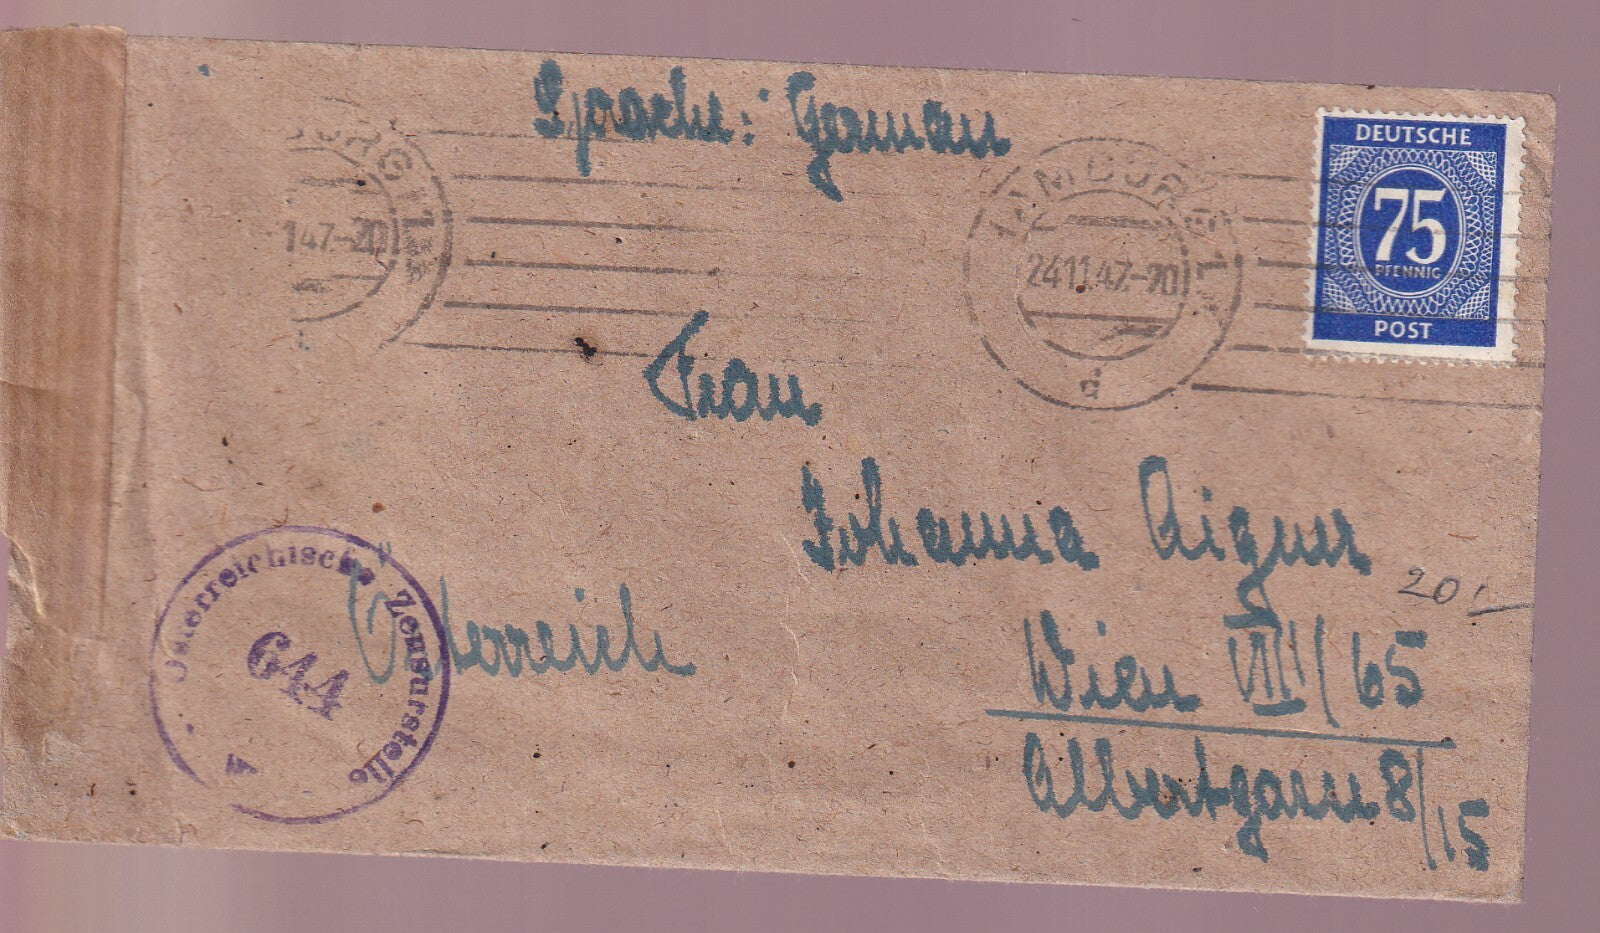 Sprache: German
DEUTSCHE
75
PFENNIG
POST
1 47.-20
HAMBURG 1
24.11.47.-20
d
Frau
Johanna Aigner
20.-
Wien VIII/65
Albertgasse 8/15
Österreich
Österreichische Zensurstelle
644